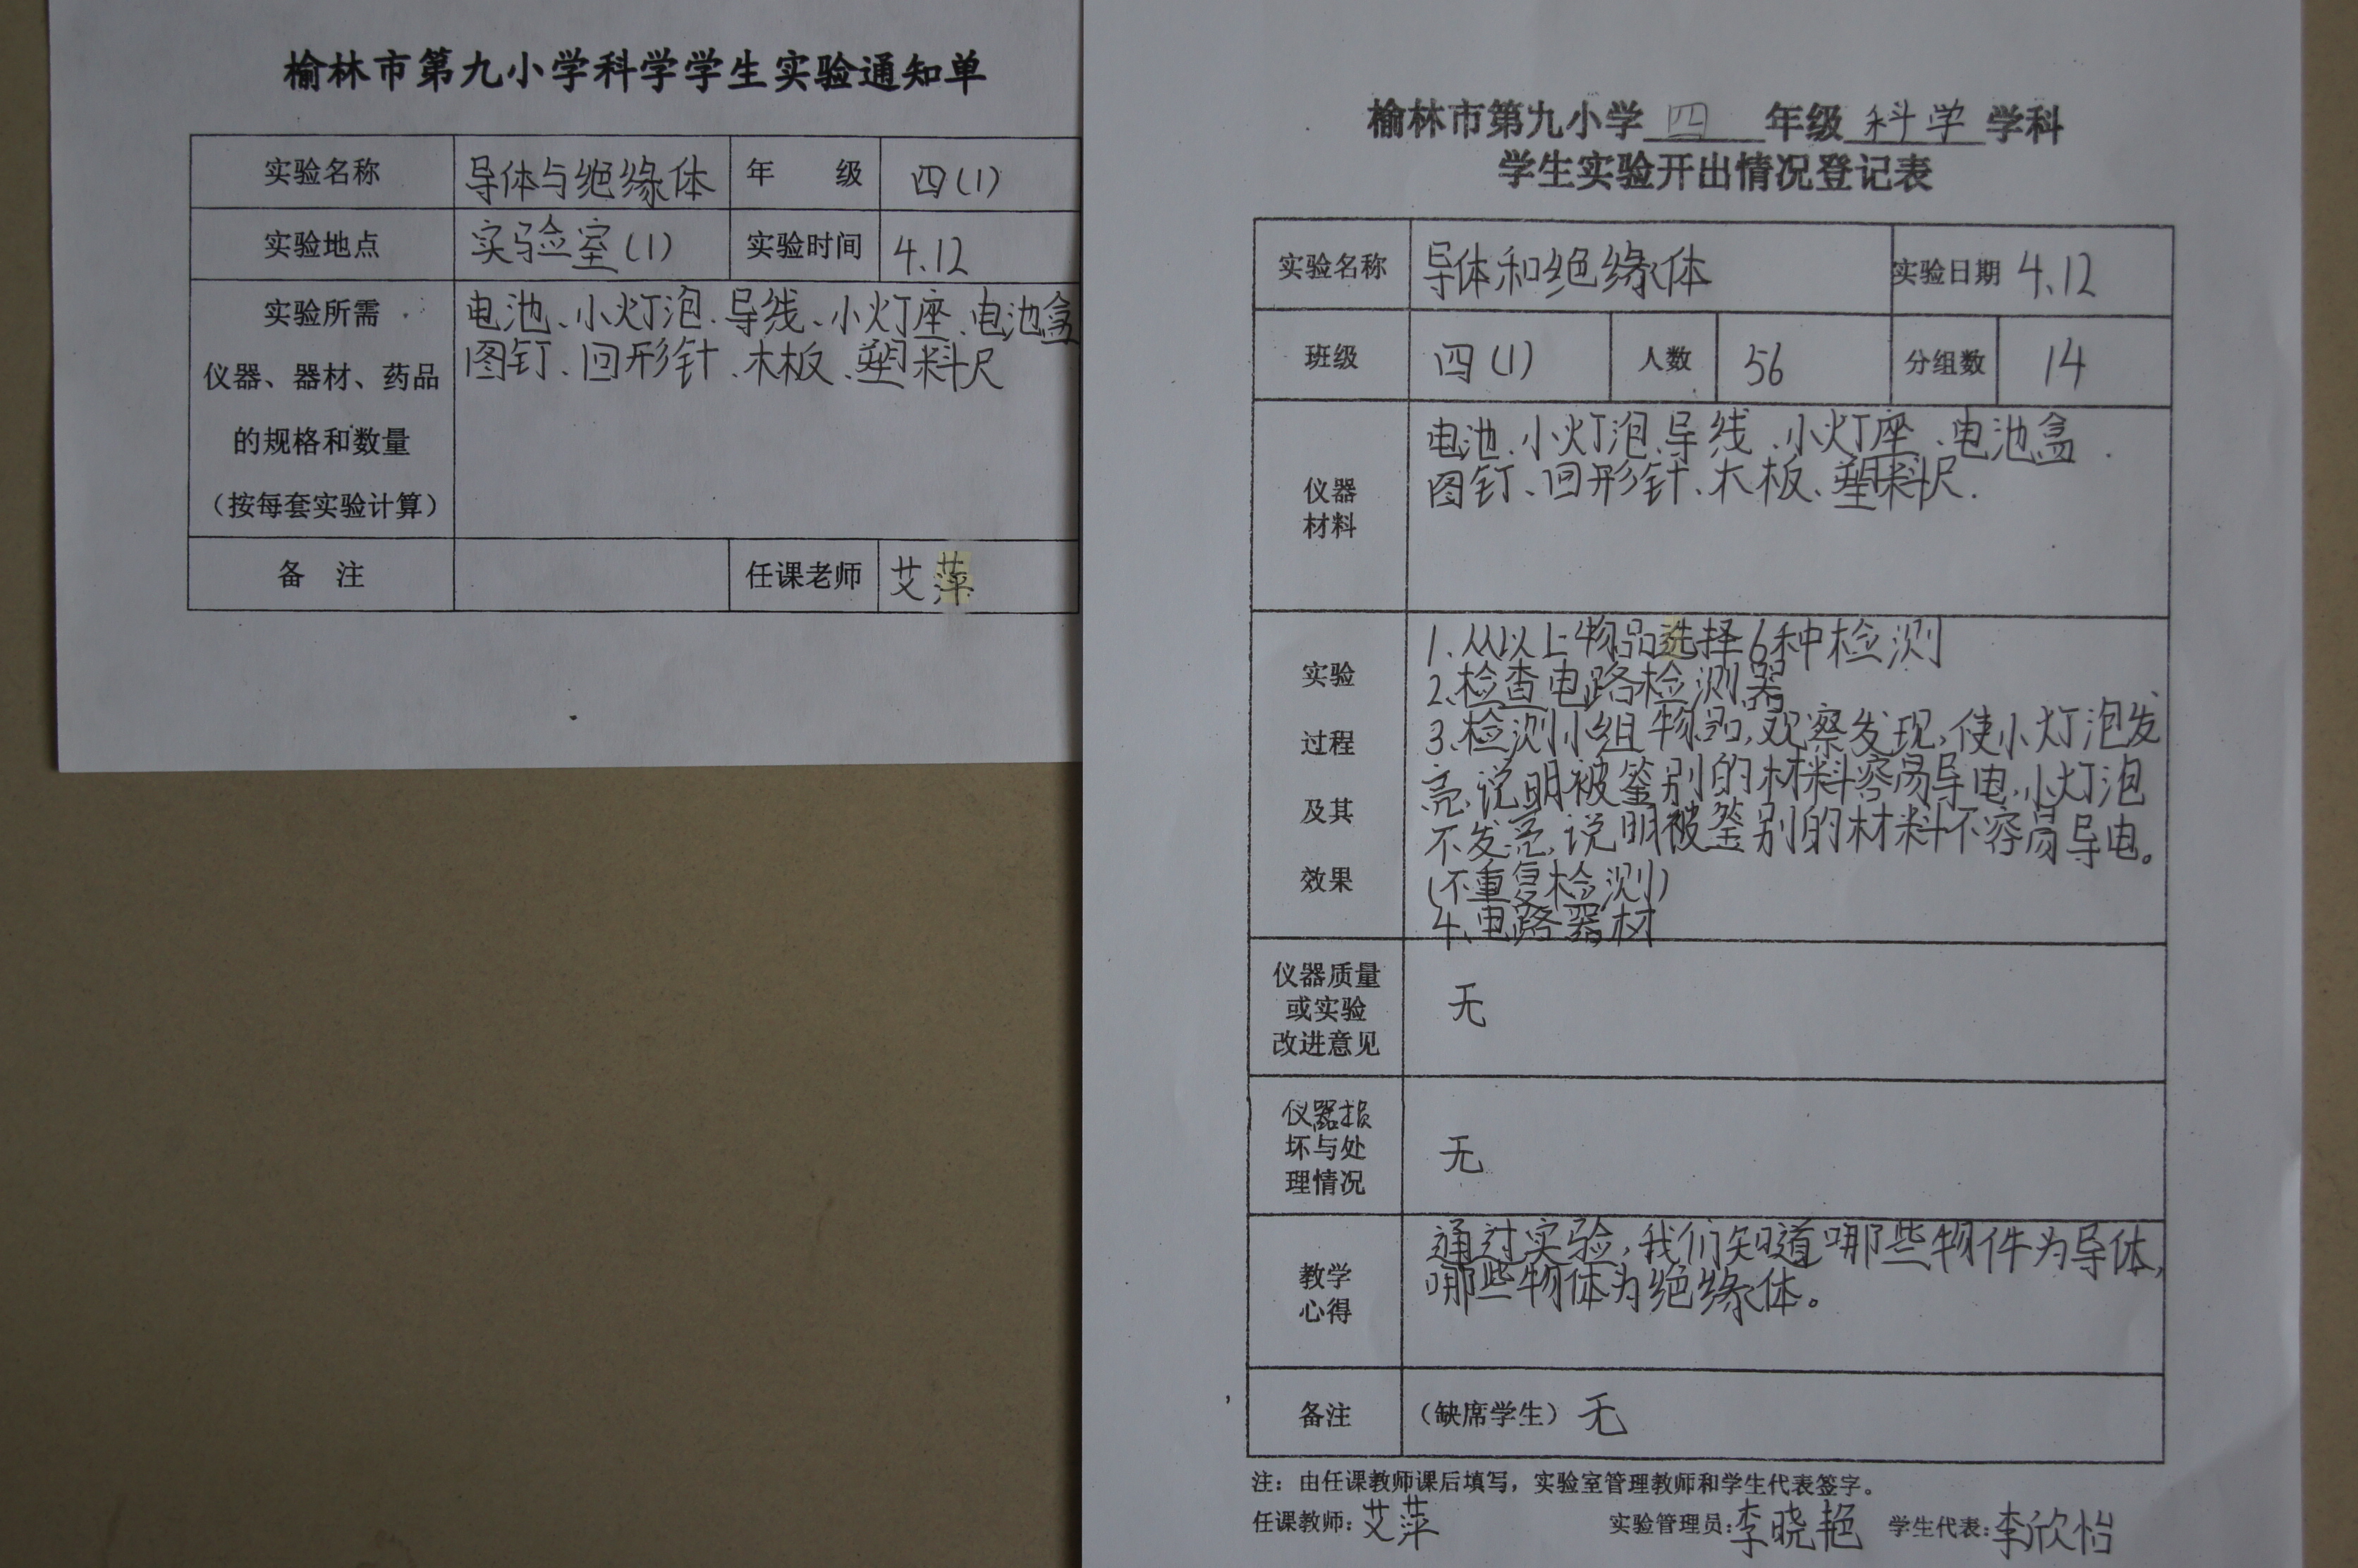 榆林市第九小学科学学生实验通知单
实验名称 导体与绝缘体 年 级 四(1)
实验地点 实验室(1) 实验时间 4.12
实验所需
仪器、器材、药品
的规格和数量
（按每套实验计算）
电池、小灯泡、导线、小灯座、电池盒
图钉、回形针、木板、塑料尺
备 注 任课老师 艾萍
榆林市第九小学 四 年级 科学 学科
学生实验开出情况登记表
实验名称 导体和绝缘体 实验日期 4.12
班级 四(1) 人数 56 分组数 14
仪器
材料
电池、小灯泡、导线、小灯座、电池盒.
图钉、回形针、木板、塑料尺.
实验
过程
及其
效果
1、从以上物品选择6种检测
2、检查电路检测器
3、检测小组物品,观察发现,使小灯泡发
亮,说明被鉴别的材料容易导电,小灯泡
不发亮,说明被鉴别的材料不容易导电。
(不重复检测)
4、电路器材
仪器质量
或实验
改进意见
无
仪器损
坏与处
理情况
无
教学
心得
通过实验,我们知道哪些物件为导体,
哪些物体为绝缘体。
备注 （缺席学生）无
注：由任课教师课后填写，实验室管理教师和学生代表签字。
任课教师：艾萍 实验管理员：李晓艳 学生代表：李欣怡